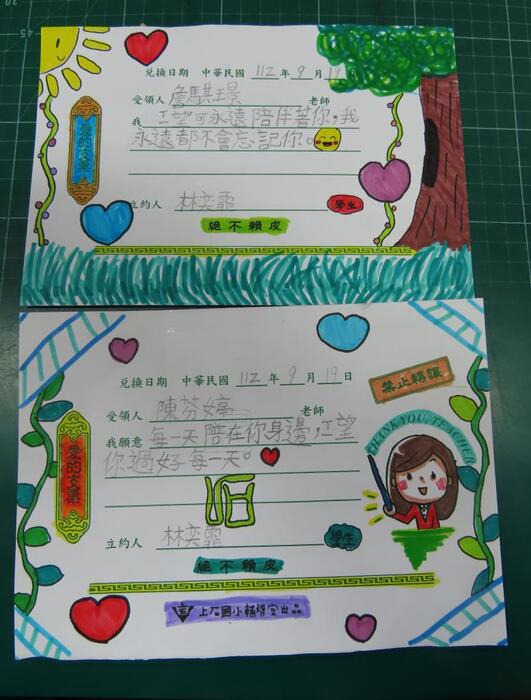 兌換日期 中華民國 112 年 9 月 19 日
受領人 詹騏璟 老師
我 工望可永遠陪伴著你,我
永遠都不會忘記你。
愛的支票
立約人 林奕霏 學生
絕不賴皮
兌換日期 中華民國 112 年 9 月 19 日
禁止轉讓
受領人 陳芬婷 老師
我願意 每一天陪在你身邊,工望
你過好每一天。
THANK YOU, TEACHER
愛的支票
立約人 林奕霏 學生
絕不賴皮
上石國小輔導室出品